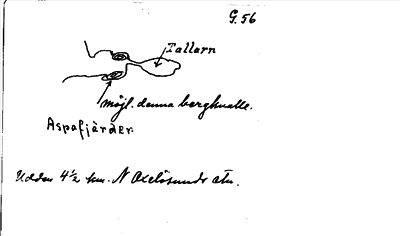 G. 56
Tallarn
möjl. denna bergknalle.
Aspafjärden
Udden 4½ km. N Oxelösunds stn.